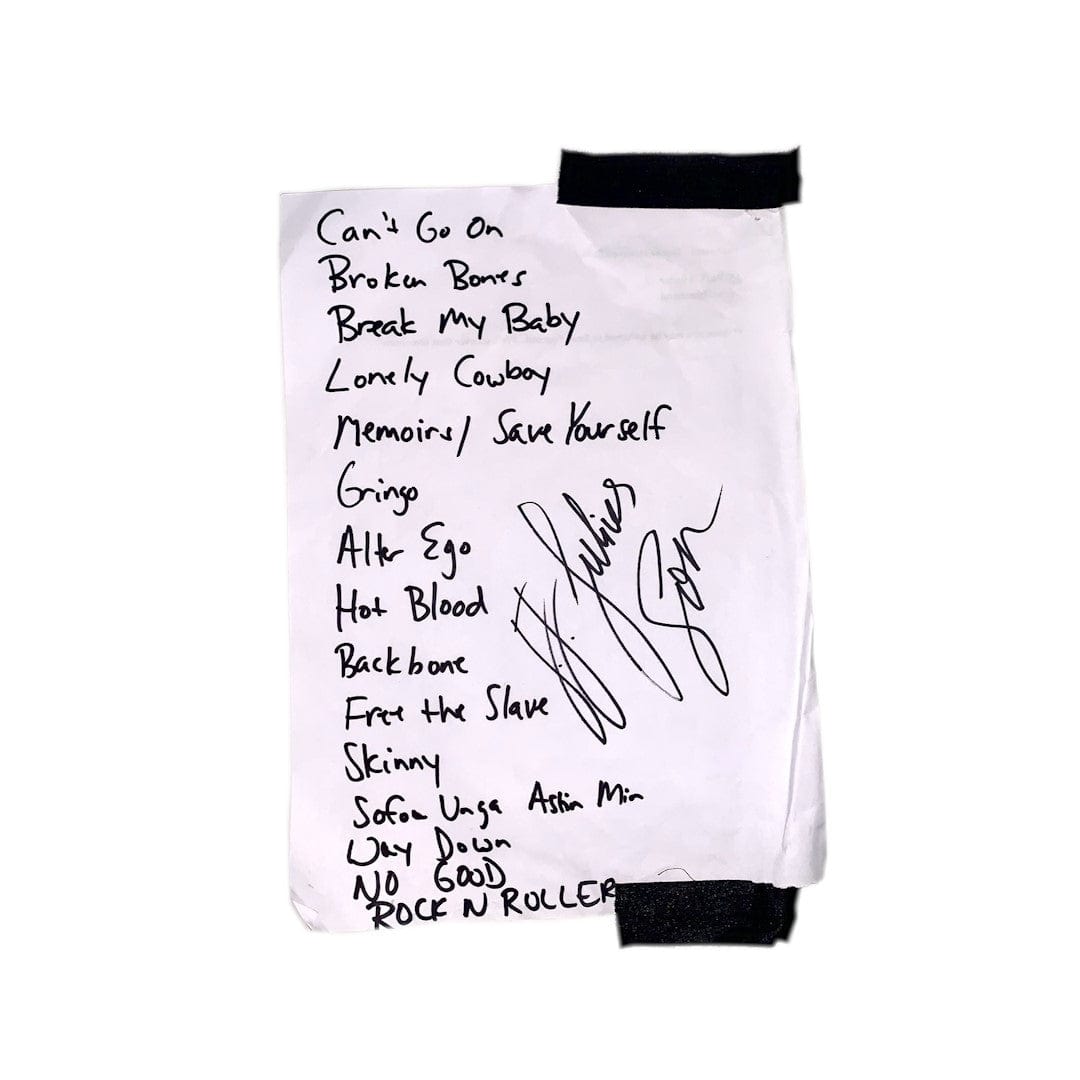 Can't Go On
Broken Bones
Break My Baby
Lonely Cowboy
Memoirs/ Save Yourself
Gringo
Alter Ego
Hot Blood
Backbone
Free the Slave
Skinny
Sofðu Unga Ástin Mín
Way Down
NO GOOD
ROCK N ROLLER
JJ. Julius
Son